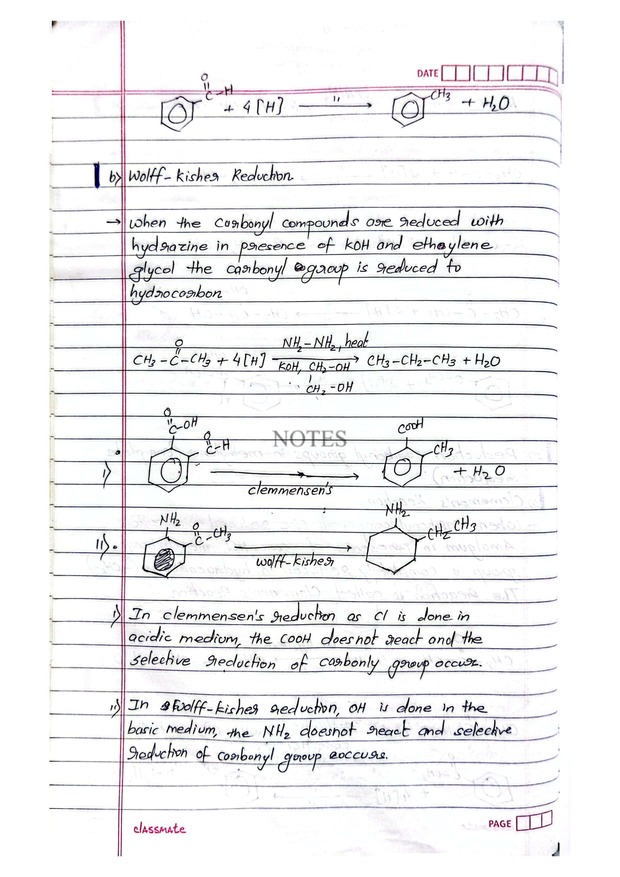 DATE
O
||
C-H + 4[H] —"→ CH3 + H2O
b) Wolff-kisher Reduction
→ when the carbonyl compounds are reduced with
hydrazine in presence of KOH and ethaylene
glycol the carbonyl group is reduced to
hydrocarbon
NH2-NH2, heat
CH3-C(=O)-CH3 + 4[H] → CH3-CH2-CH3 + H2O
KOH, CH2-OH
CH2-OH
O
C-OH O COOH
C-H NOTES CH3
i) → + H2O
clemmensen's
NH2 O NH2
ii). C-CH3 → CH2 CH3
wolff-kisher
i) In clemmensen's reduction as Cl is done in
acidic medium, the COOH doesnot react and the
selective reduction of carbonly group occur.
ii) In wolff-kisher reduction, OH is done in the
basic medium, the NH2 doesnot react and selective
reduction of carbonyl group eoccurs.
classmate
PAGE